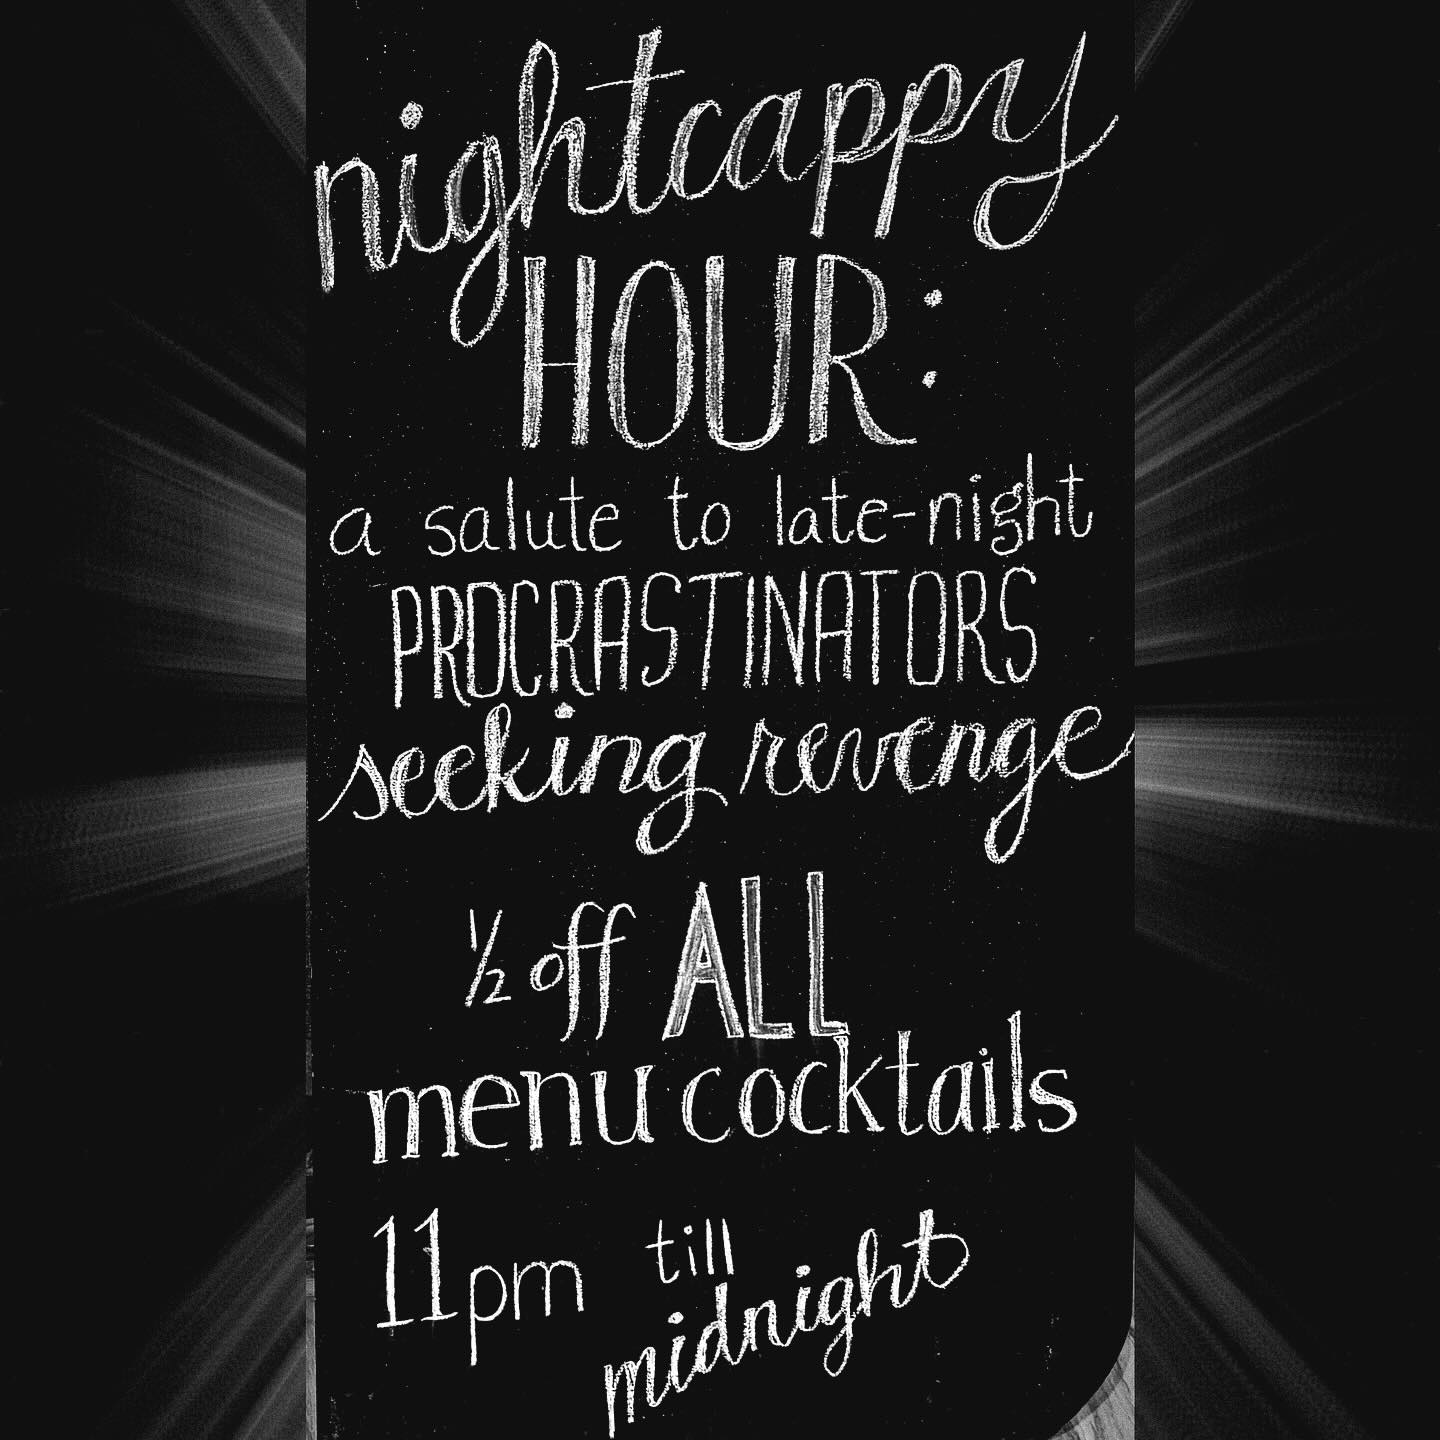 nightcappy
HOUR:
a salute to late-night
PROCRASTINATORS
seeking revenge
½ off ALL
menu cocktails
11pm till
midnight